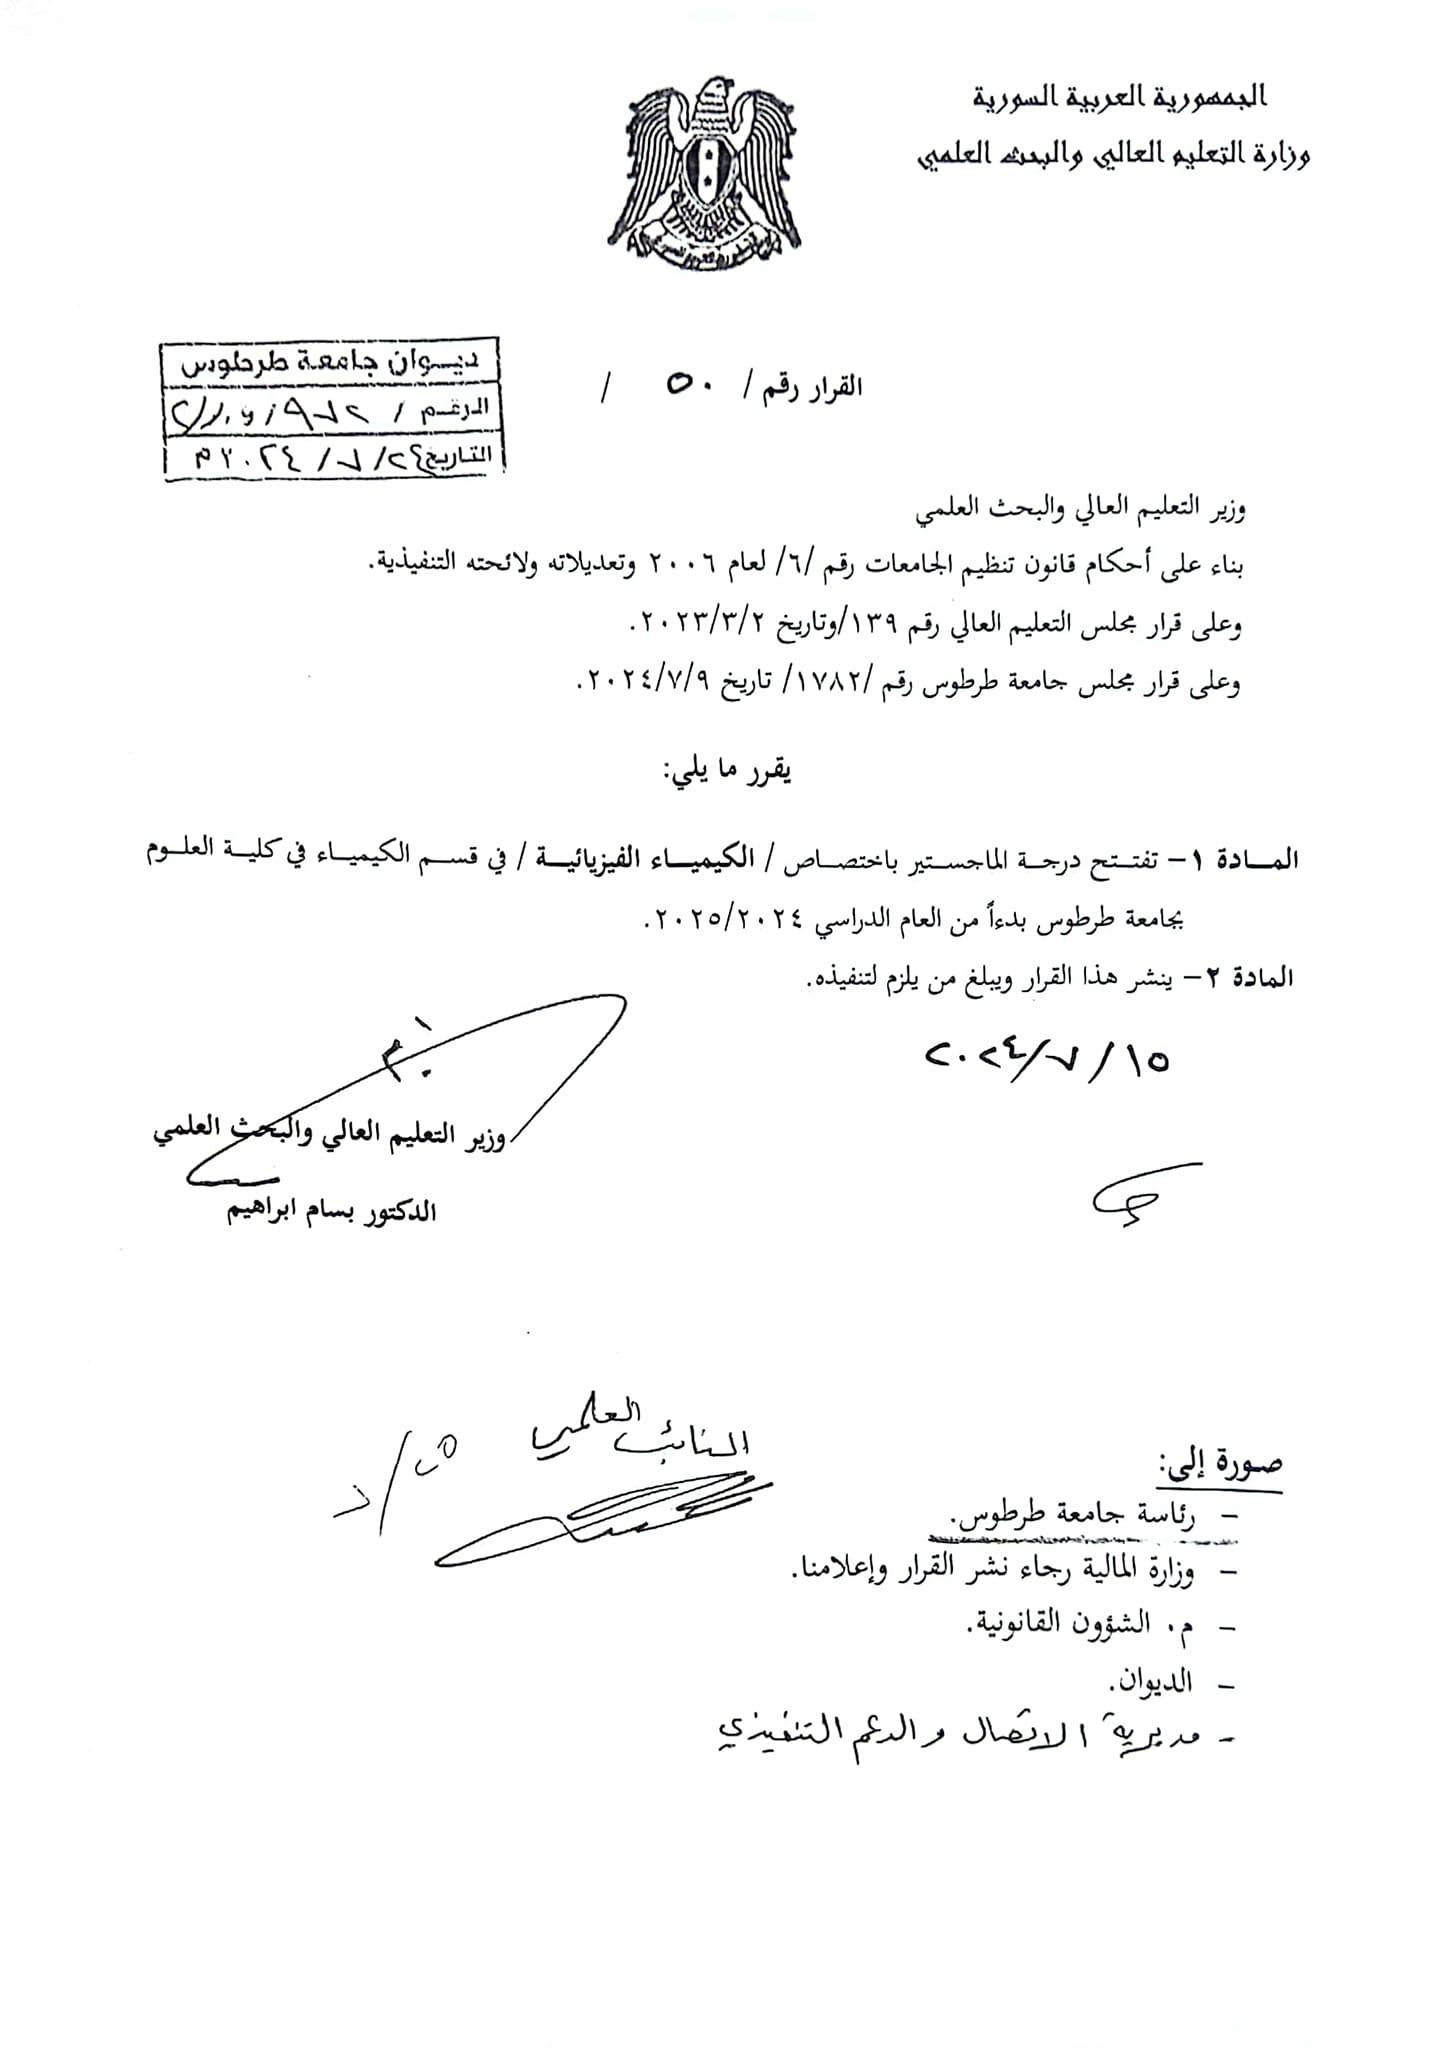 الجمهورية العربية السورية
وزارة التعليم العالي والبحث العلمي
القرار رقم / ٥٠ /
ديوان جامعة طرطوس
الرقم / ٩٧٢ /
التاريخ ٢٤ / ٧ / ٢٠٢٤ م
وزير التعليم العالي والبحث العلمي
بناء على أحكام قانون تنظيم الجامعات رقم /٦/ لعام ٢٠٠٦ وتعديلاته ولائحته التنفيذية.
وعلى قرار مجلس التعليم العالي رقم ١٣٩/وتاريخ ٢٠٢٣/٣/٢.
وعلى قرار مجلس جامعة طرطوس رقم /١٧٨٢/ تاريخ ٢٠٢٤/٧/٩.
يقرر ما يلي:
المـادة ١- تفتتح درجة الماجستير باختصاص / الكيمياء الفيزيائية / في قسم الكيمياء في كلية العلوم
بجامعة طرطوس بدءاً من العام الدراسي ٢٠٢٥/٢٠٢٤.
المادة ٢- ينشر هذا القرار ويبلغ من يلزم لتنفيذه.
١٥ / ٧ / ٢٠٢٤
وزير التعليم العالي والبحث العلمي
الدكتور بسام ابراهيم
النائب العلمي
صورة إلى:
- رئاسة جامعة طرطوس.
- وزارة المالية رجاء نشر القرار وإعلامنا.
- م. الشؤون القانونية.
- الديوان.
- مديرية الاتصال والدعم التنفيذي